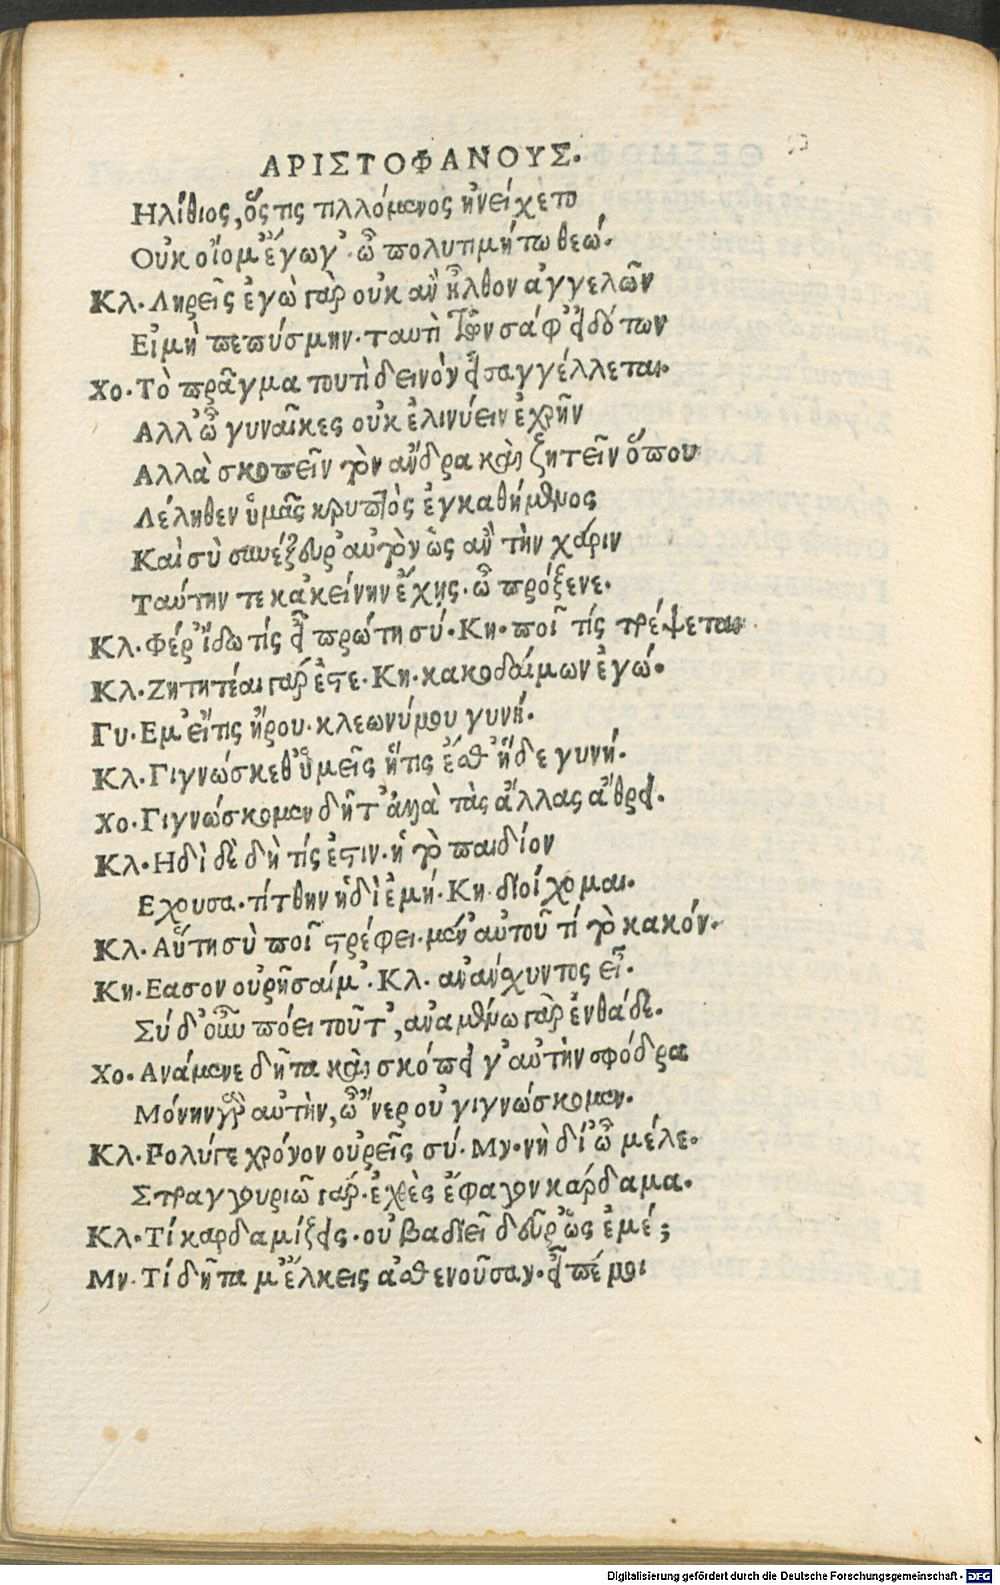 ΑΡΙΣΤΟΦΑΝΟΥΣ.
Ηλίθιος, ὅςτις τιλλόμενος ἠνείχετο
Οὐκ οἴομ' ἔγωγ'. ὦ πολυτιμήτω θεώ.
Κλ. Ληρεῖς ἐγὼ γὰρ οὐκ ἂν ἦλθον ἀγγελῶν
Εἰ μὴ πεπύσμην. ταυτὶ τῶν σάφ' εἰδότων
Χο. Τὸ πρᾶγμα τουτὶ δεινὸν εἰσαγγέλλεται.
Αλλ' ὦ γυναῖκες οὐκ ἐλινύειν ἐχρῆν
Αλλὰ σκοπεῖν τὸν ἄνδρα καὶ ζητεῖν ὅπου
Λέληθεν ὑμᾶς κρυπτὸς ἐγκαθήμενος
Καὶ σὺ συνέξευρ' αὐτὸν ὡς ἂν τὴν χάριν
Ταύτην τε κἀκείνην ἔχῃς. ὦ πρόξενε.
Κλ. Φέρ' ἴδω τίς εἶ πρώτη σύ. Κη. ποῖ τίς τρέψεται
Κλ. Ζητητέαι γάρ ἐστε. Κη. κακοδαίμων ἐγώ.
Γυ. Εμ' εἴτις ἤρου. κλεωνύμου γυνή.
Κλ. Γιγνώσκεθ' ὑμεῖς ἥτις ἔσθ' ἥδε γυνή.
Χο. Γιγνώσκομεν δῆτ' ἀλλὰ τὰς ἄλλας ἄθρει.
Κλ. Ηδὶ δὲ δὴ τίς ἐστιν. ἡ τὸ παιδίον
Εχουσα. τίτθην ἡδὶ ἐμή. Κη. διοίχομαι.
Κλ. Αὕτη σὺ ποῖ στρέφει. μέν' αὐτοῦ τί τὸ κακόν.
Κη. Εασον οὐρῆσαίμ'. Κλ. ἀναίσχυντος εἶ.
Σύ δ' οὖν πόει τοῦτ', ἀναμένω γὰρ ἐνθάδε.
Χο. Ανάμενε δῆτα καὶ σκόπει γ' αὐτὴν σφόδρα
Μόνην γὰρ αὐτὴν, ὦ 'νερ οὐ γιγνώσκομεν.
Κλ. Ρολύγε χρόνον οὐρεῖς σύ. Μν. νὴ δί' ὦ μέλε.
Στραγγουριῶ γάρ. ἐχθὲς ἔφαγον κάρδαμα.
Κλ. Τί καρδαμίζεις. οὐ βαδιεῖ δεῦρ' ὡς ἐμέ;
Μν. Τί δῆτα μ' ἕλκεις ἀσθενοῦσαν. εἰπέ μοι
Digitalisierung gefördert durch die Deutsche Forschungsgemeinschaft - DFG